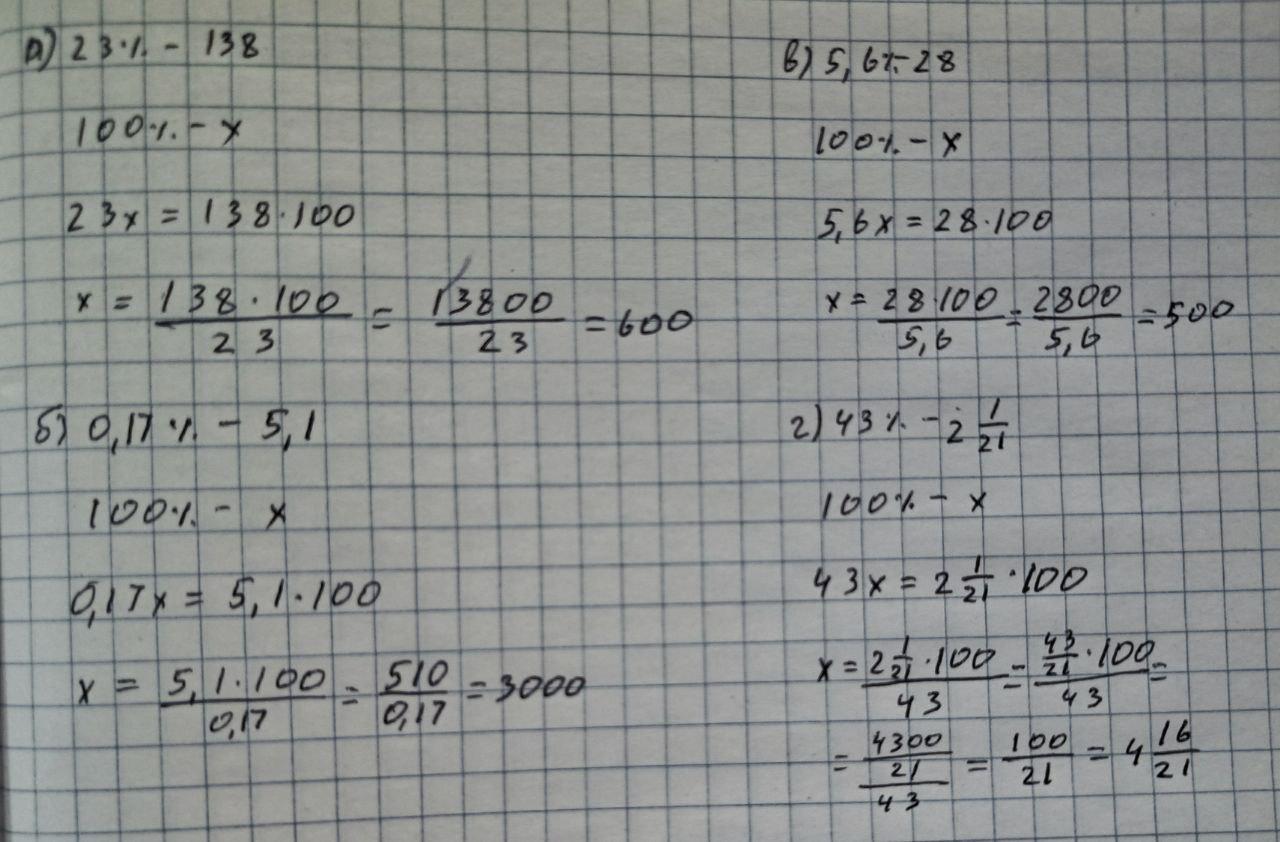 а) 23% - 138
100% - x
23x = 138·100
x = 138·100/23 = 13800/23 = 600
б) 0,17% - 5,1
100% - x
0,17x = 5,1·100
x = 5,1·100/0,17 = 510/0,17 = 3000
в) 5,6% - 28
100% - x
5,6x = 28·100
x = 28·100/5,6 = 2800/5,6 = 500
г) 43% - 2 1/21
100% - x
43x = 2 1/21 ·100
x = 2 1/21 ·100/43 = 43/21 ·100/43 =
= 4300/21/43 = 100/21 = 4 16/21